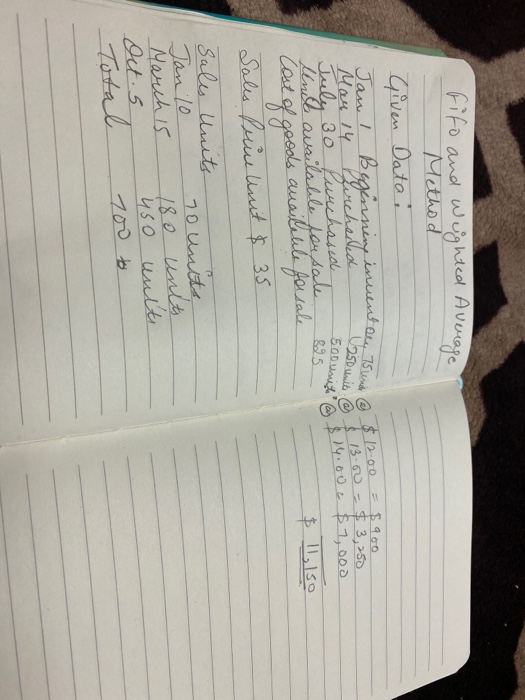 Fifo and Wighted Average
Method
Given Data:
Jan 1 Beginning inventory 75 units @ $12.00 = $900
Mar 14 Purchased 250 units @ $13.00 = $3,250
July 30 Purchased 500 units @ $14.00 = $7,000
Units available for sale 825
Cost of goods available for sale $11,150
Sales Price Unit $ 35
Sales Units
Jan 10 70 units
March 15 180 units
Oct. 5 450 units
Total 700